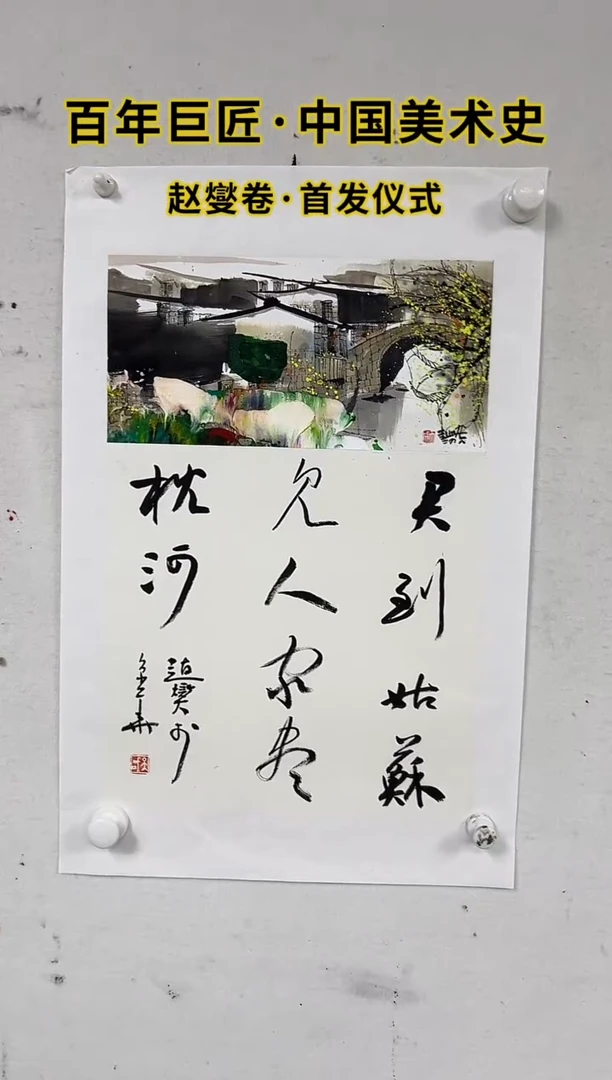 百年巨匠·中国美术史
赵燮卷·首发仪式
君到姑蘇
见人家尽
枕河